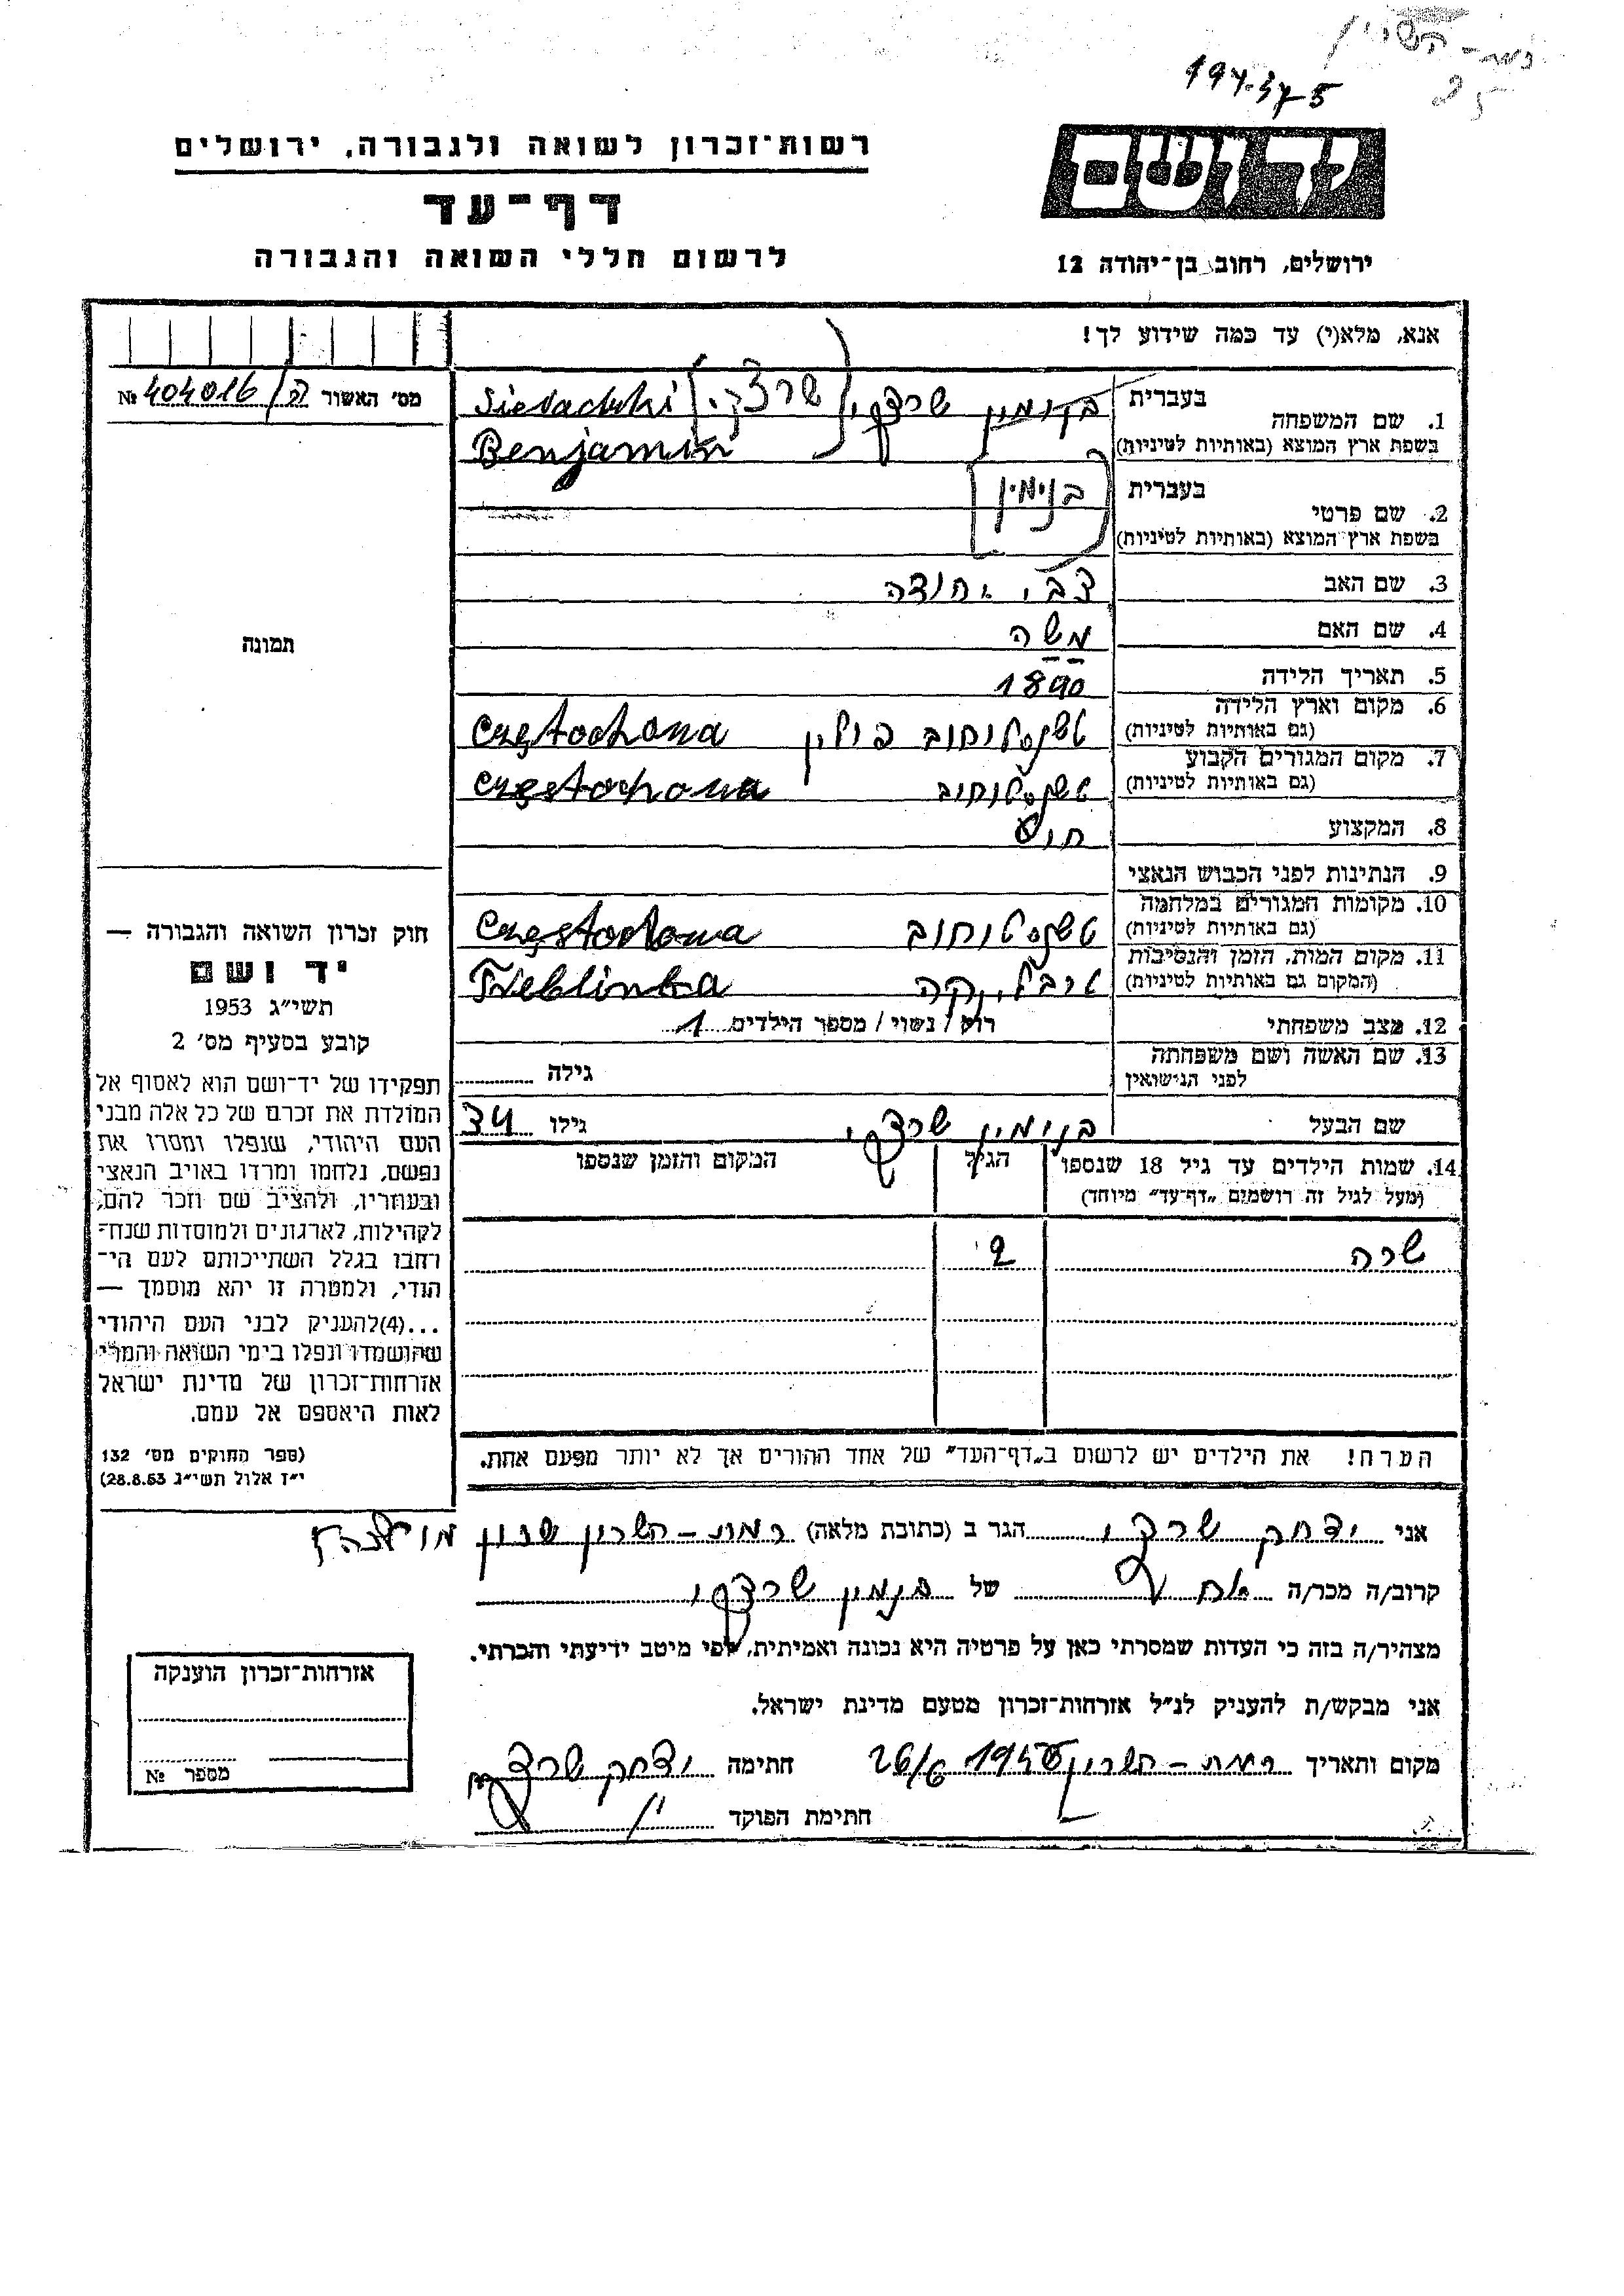 194-375
רשות-זכרון לשואה ולגבורה, ירושלים
דף-עד
לרשום חללי השואה והגבורה
יד ושם
ירושלים, רחוב בן-יהודה 12
אנא, מלא(י) עד כמה שידוע לך!
מס' האשור ק/ 404016 №
1. שם המשפחה
בעברית
בשפת ארץ המוצא (באותיות לטיניות)
שרצקי
Benjamin
2. שם פרטי
בעברית
בשפת ארץ המוצא (באותיות לטיניות)
בנימין
3. שם האב
צבי יהודה
4. שם האם
משה
5. תאריך הלידה
1890
6. מקום וארץ הלידה
(גם באותיות לטיניות)
טשנסטוחוב פולין Częstochowa
7. מקום המגורים הקבוע
(גם באותיות לטיניות)
טשנסטוחוב Częstochowa
8. המקצוע
9. הנתינות לפני הכבוש הנאצי
10. מקומות המגורים במלחמה
(גם באותיות לטיניות)
טשנסטוחוב Częstochowa
11. מקום המות, הזמן והנסיבות
(המקום גם באותיות לטיניות)
טרבלינקה Treblinka
12. מצב משפחתי
רוק / נשוי / מספר הילדים 1
13. שם האשה ושם משפחתה
לפני הנישואין
גילה
שם הבעל בנימין שרצקי גילו 34
14. שמות הילדים עד גיל 18 שנספו
(מעל לגיל זה רושמים "דף-עד" מיוחד)
הגיל
המקום והזמן שנספו
שרה 2
הערה! את הילדים יש לרשום ב"דף-העד" של אחד ההורים אך לא יותר מפעם אחת.
תמונה
חוק זכרון השואה והגבורה —
יד ושם
תשי"ג 1953
קובע בסעיף מס' 2
תפקידו של יד-ושם הוא לאסוף אל
המולדת את זכרם של כל אלה מבני
העם היהודי, שנפלו ומסרו את
נפשם, נלחמו ומרדו באויב הנאצי
ובעוזריו, ולהציב שם וזכר להם,
לקהילות, לארגונים ולמוסדות שנח-
רחבו בגלל השתייכותם לעם הי-
הודי, ולמטרה זו יהא מוסמך —
...(4)להעניק לבני העם היהודי
שהושמדו ונפלו בימי השואה והמרי
אזרחות-זכרון של מדינת ישראל
לאות היאספם אל עמם.
(ספר החוקים מס' 132
י"ז אלול תשי"ג 28.8.53)
אני יצחק שרצקי הגר ב (כתובת מלאה) רמת-השרון שכון
קרוב/ה מכר/ה אח של בנימין שרצקי
מצהיר/ה בזה כי העדות שמסרתי כאן על פרטיה היא נכונה ואמיתית, לפי מיטב ידיעתי והכרתי.
אני מבקש/ת להעניק לנ"ל אזרחות-זכרון מטעם מדינת ישראל.
מקום ותאריך רמת-השרון 26/6 חתימה יצחק שרצקי
חתימת הפוקד
אזרחות-זכרון הוענקה
מספר №